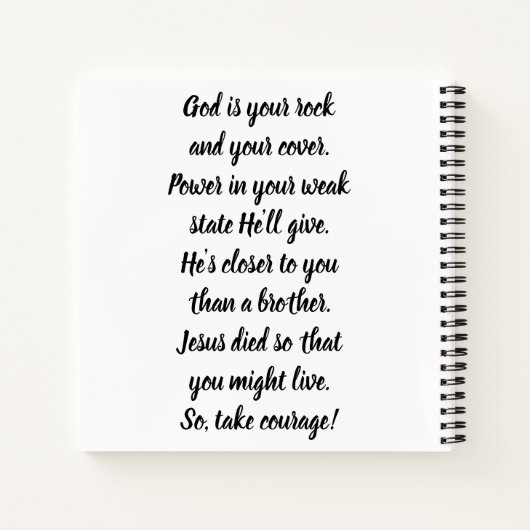 God is your rock
and your cover.
Power in your weak
state He'll give.
He's closer to you
than a brother.
Jesus died so that
you might live.
So, take courage!